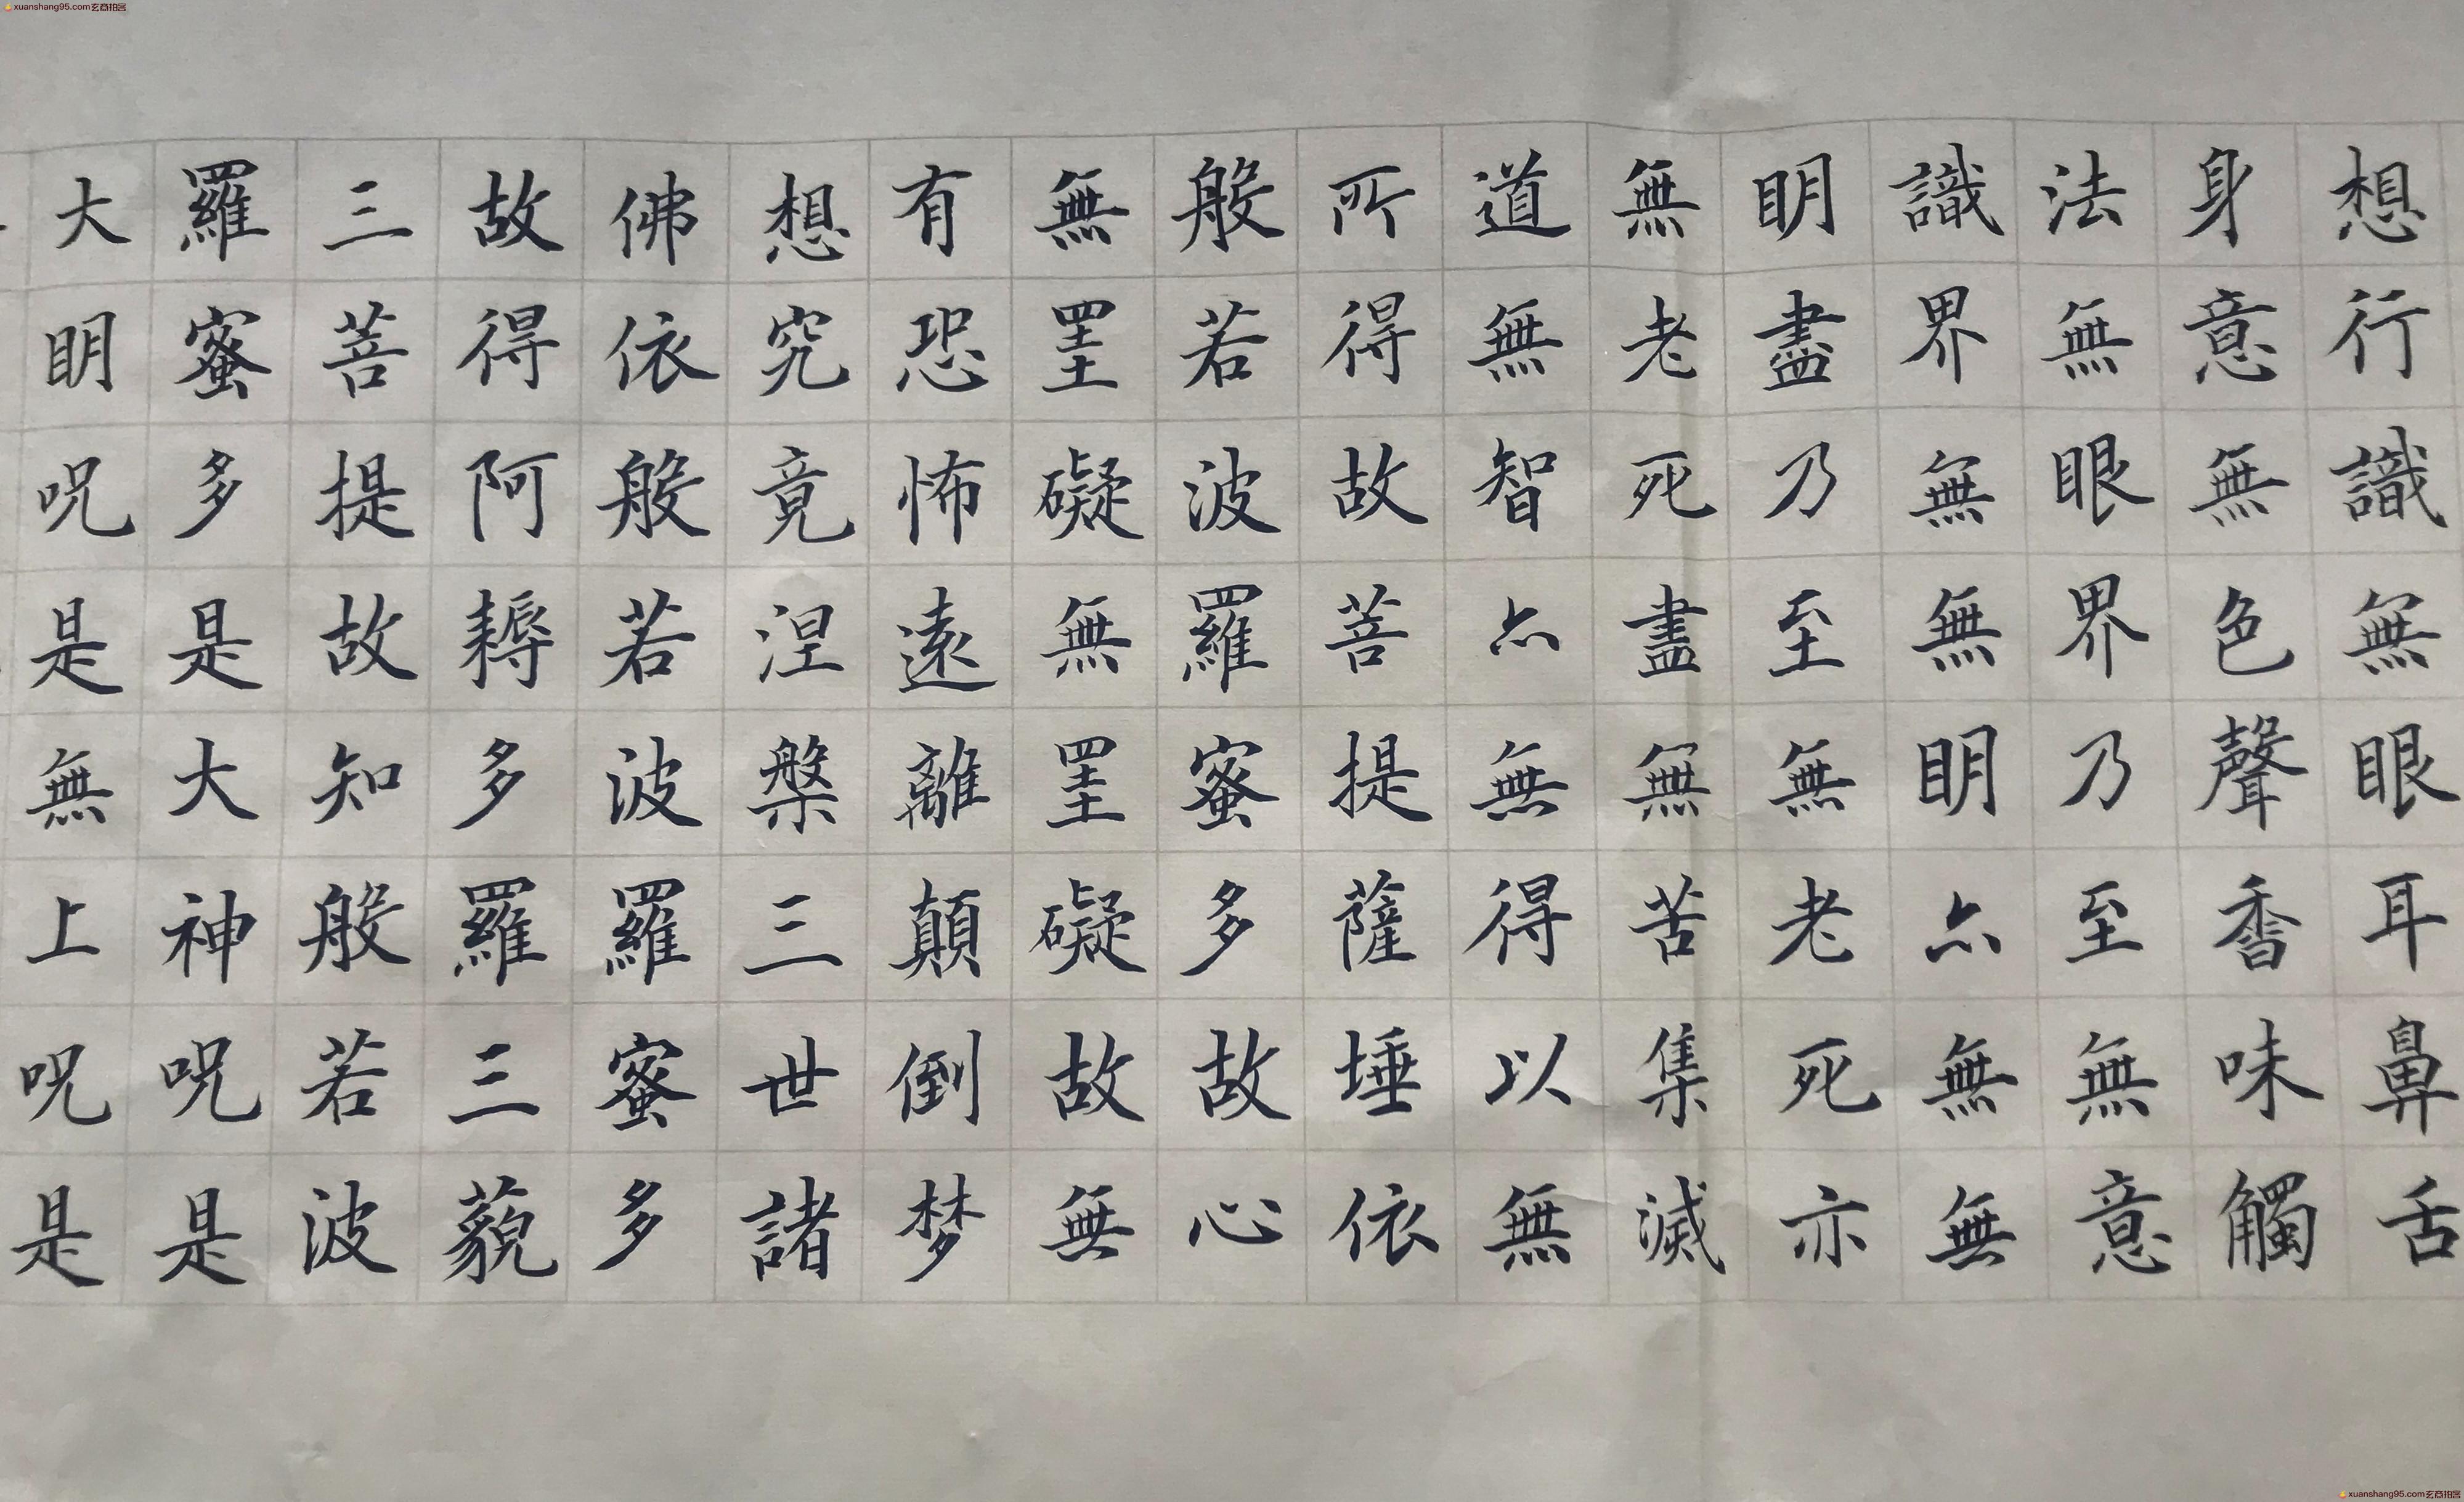 想行識無眼耳鼻舌
身意無色聲香味觸
法無眼界乃至無意
識界無無明亦無無
明盡乃至無老死亦
無老死盡無苦集滅
道無智亦無得以無
所得故菩提薩埵依
般若波羅蜜多故心
無罣礙無罣礙故無
有恐怖遠離顛倒梦
想究竟涅槃三世諸
佛依般若波羅蜜多
故得阿耨多羅三藐
三菩提故知般若波
羅蜜多是大神呪是
大明呪是無上呪是
xuanshang95.com玄商拍客
xuanshang95.com玄商拍客